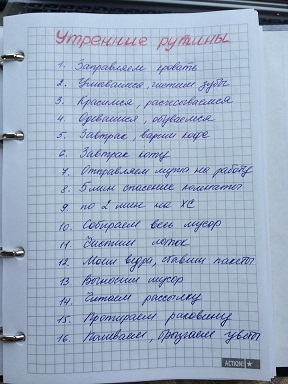 Утренние рутины
1. Заправляем кровать
2. Умываемся, чистим зубы
3. Красимся, расчесываемся
4. Одеваемся, обуваемся
5. Завтрак, варим кофе
6. Завтрак коту
7. Отправляем мужа на работу
8. 5 мин спасение комнаты
9. по 2 мин на ХС
10. Собираем весь мусор
11. Чистим лоток
12. Моем ведра, ставим пакеты
13. Выносим мусор
14. Читаем рассылку
15. Протираем раковину
16. Поливаем, брызгаем цветы
ACTION!